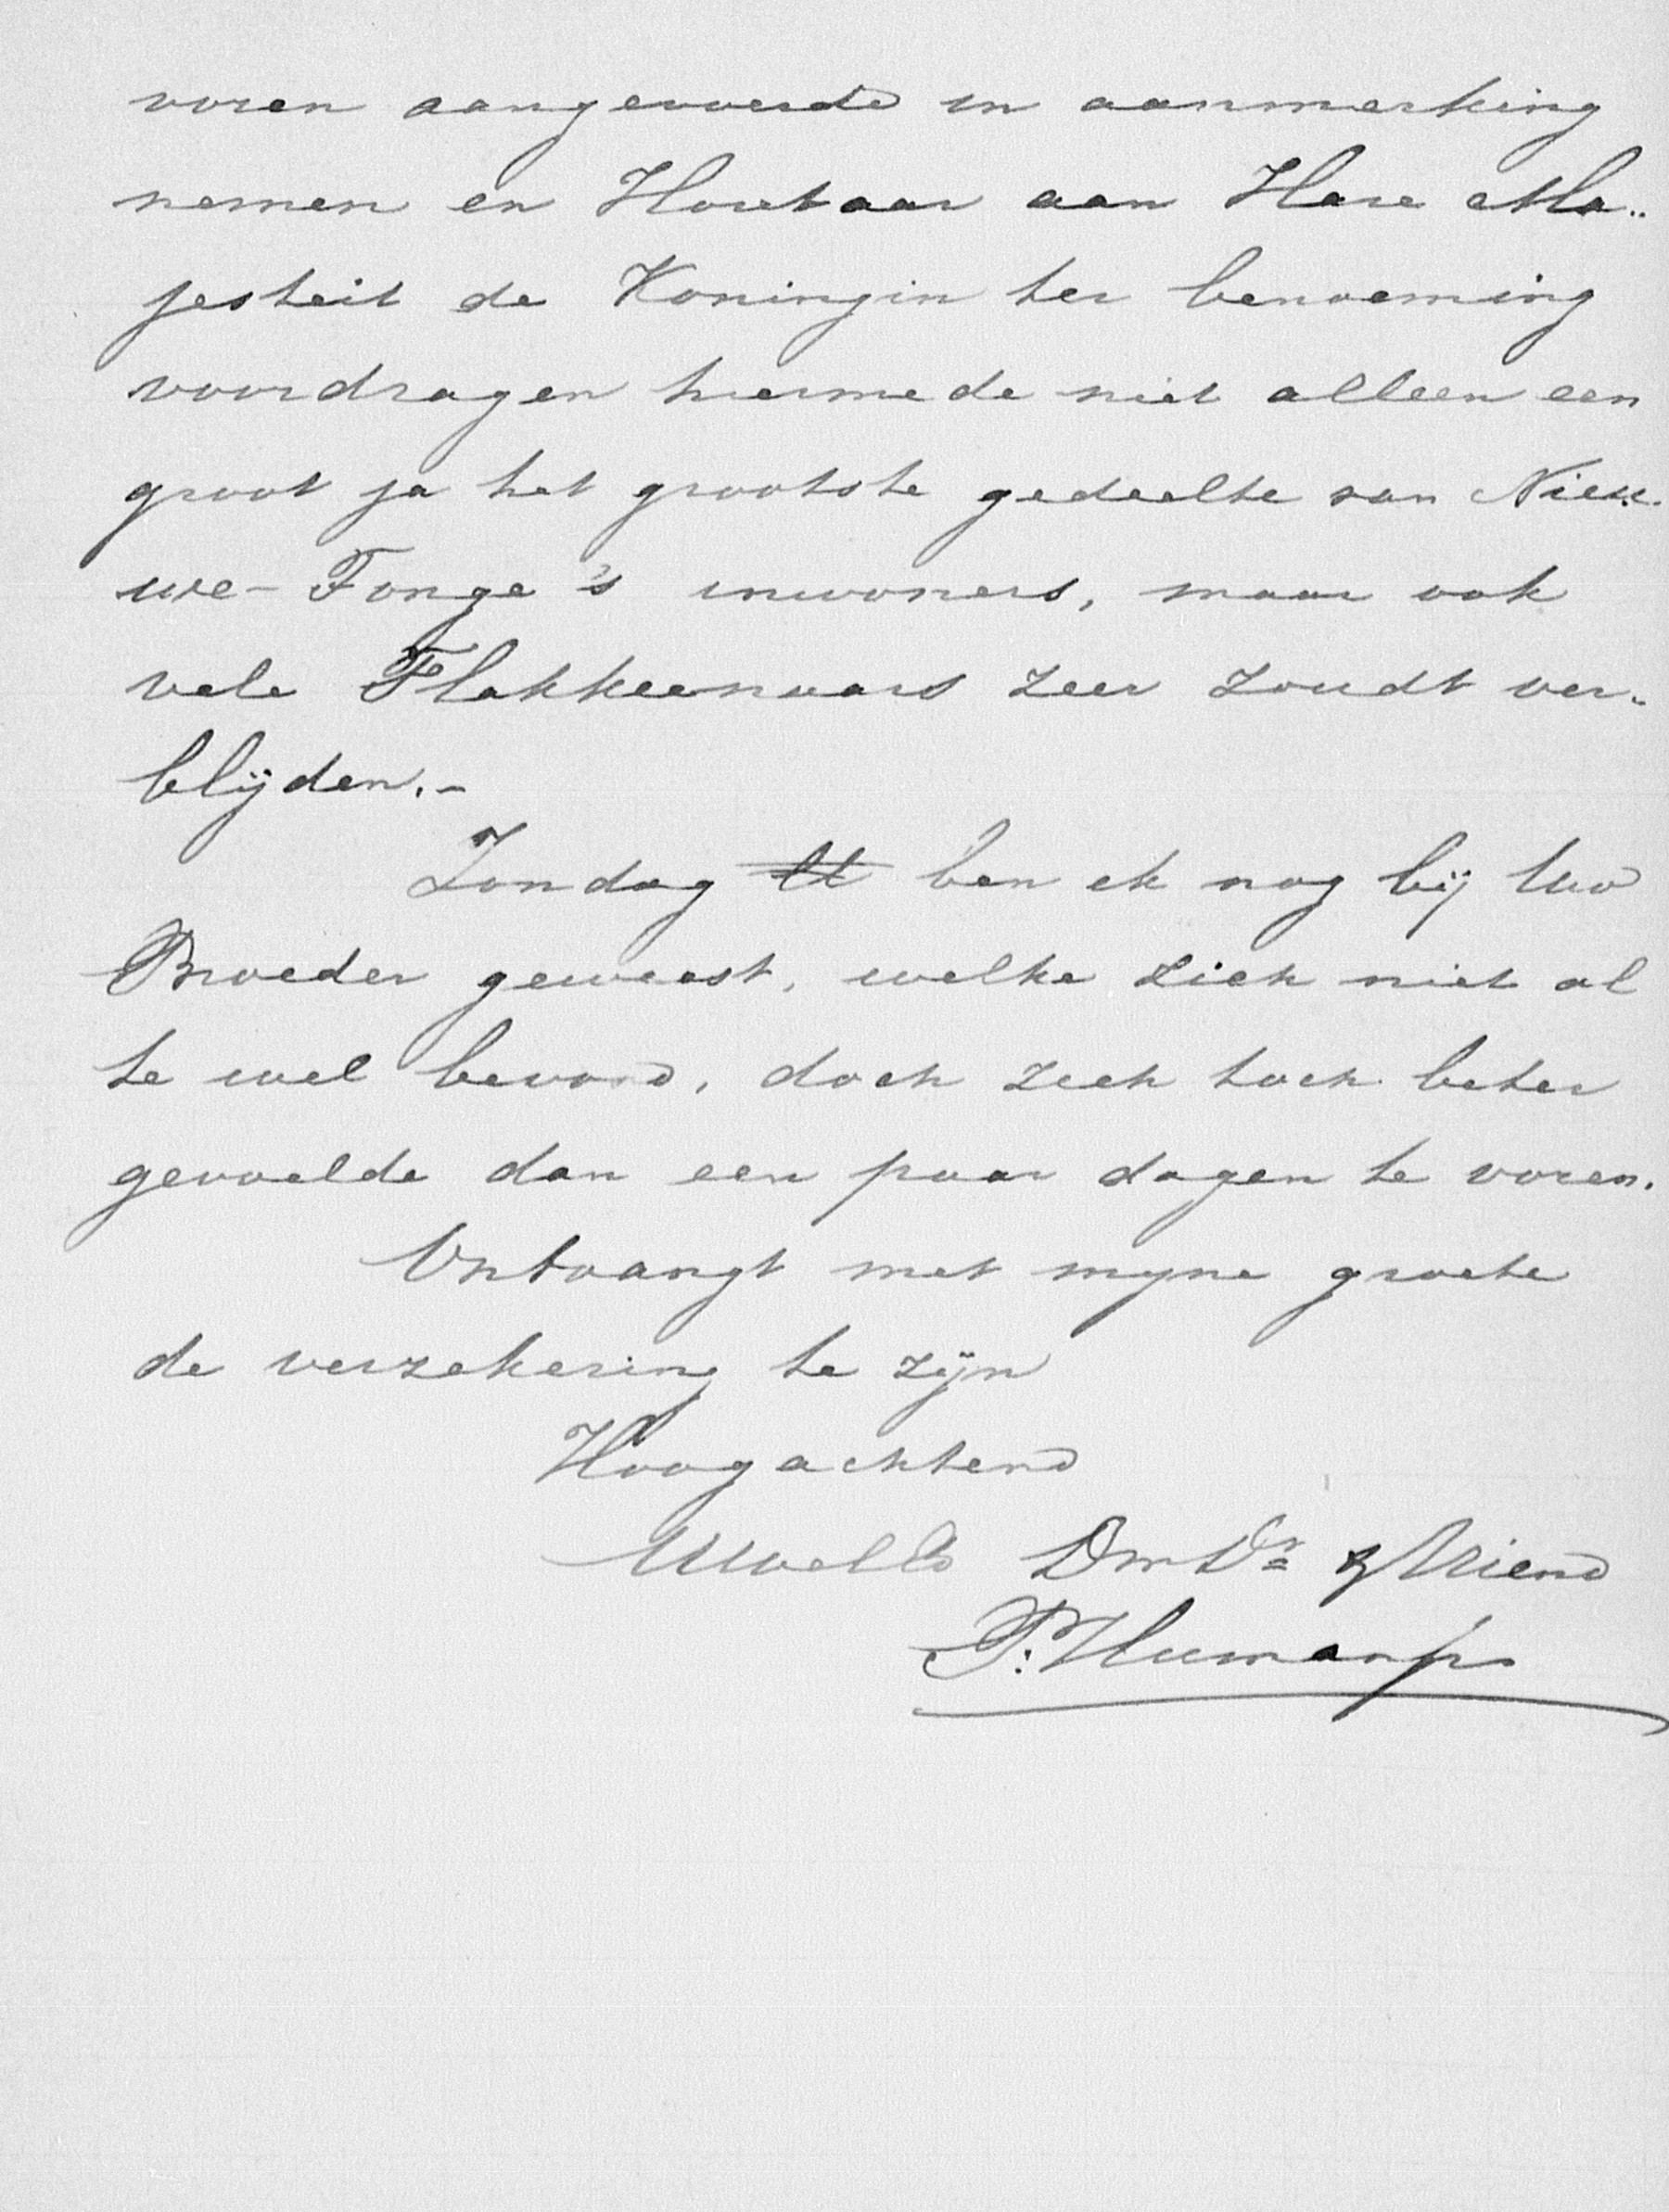 voren aangevoerde in aanmerking
nemen en Houtaar aan Hare Ma-
jesteit de Koningin ter benoeming
voordragen hiermede niet alleen een
groot ja het grootste gedeelte van Nieu-
we-Tonge's inwoners, maar ook
vele Flakkeenaars zeer zoudt ver-
blijden.-
Zondag ben ik nog bij Uw
Broeder geweest, welke zich niet al
te wel bevond, doch zich toch beter
gevoelde dan een paar dagen te voren.
Ontvangt met myne groete
de verzekering te zijn
Hoogachtend
UWelEd DwDr & Vriend